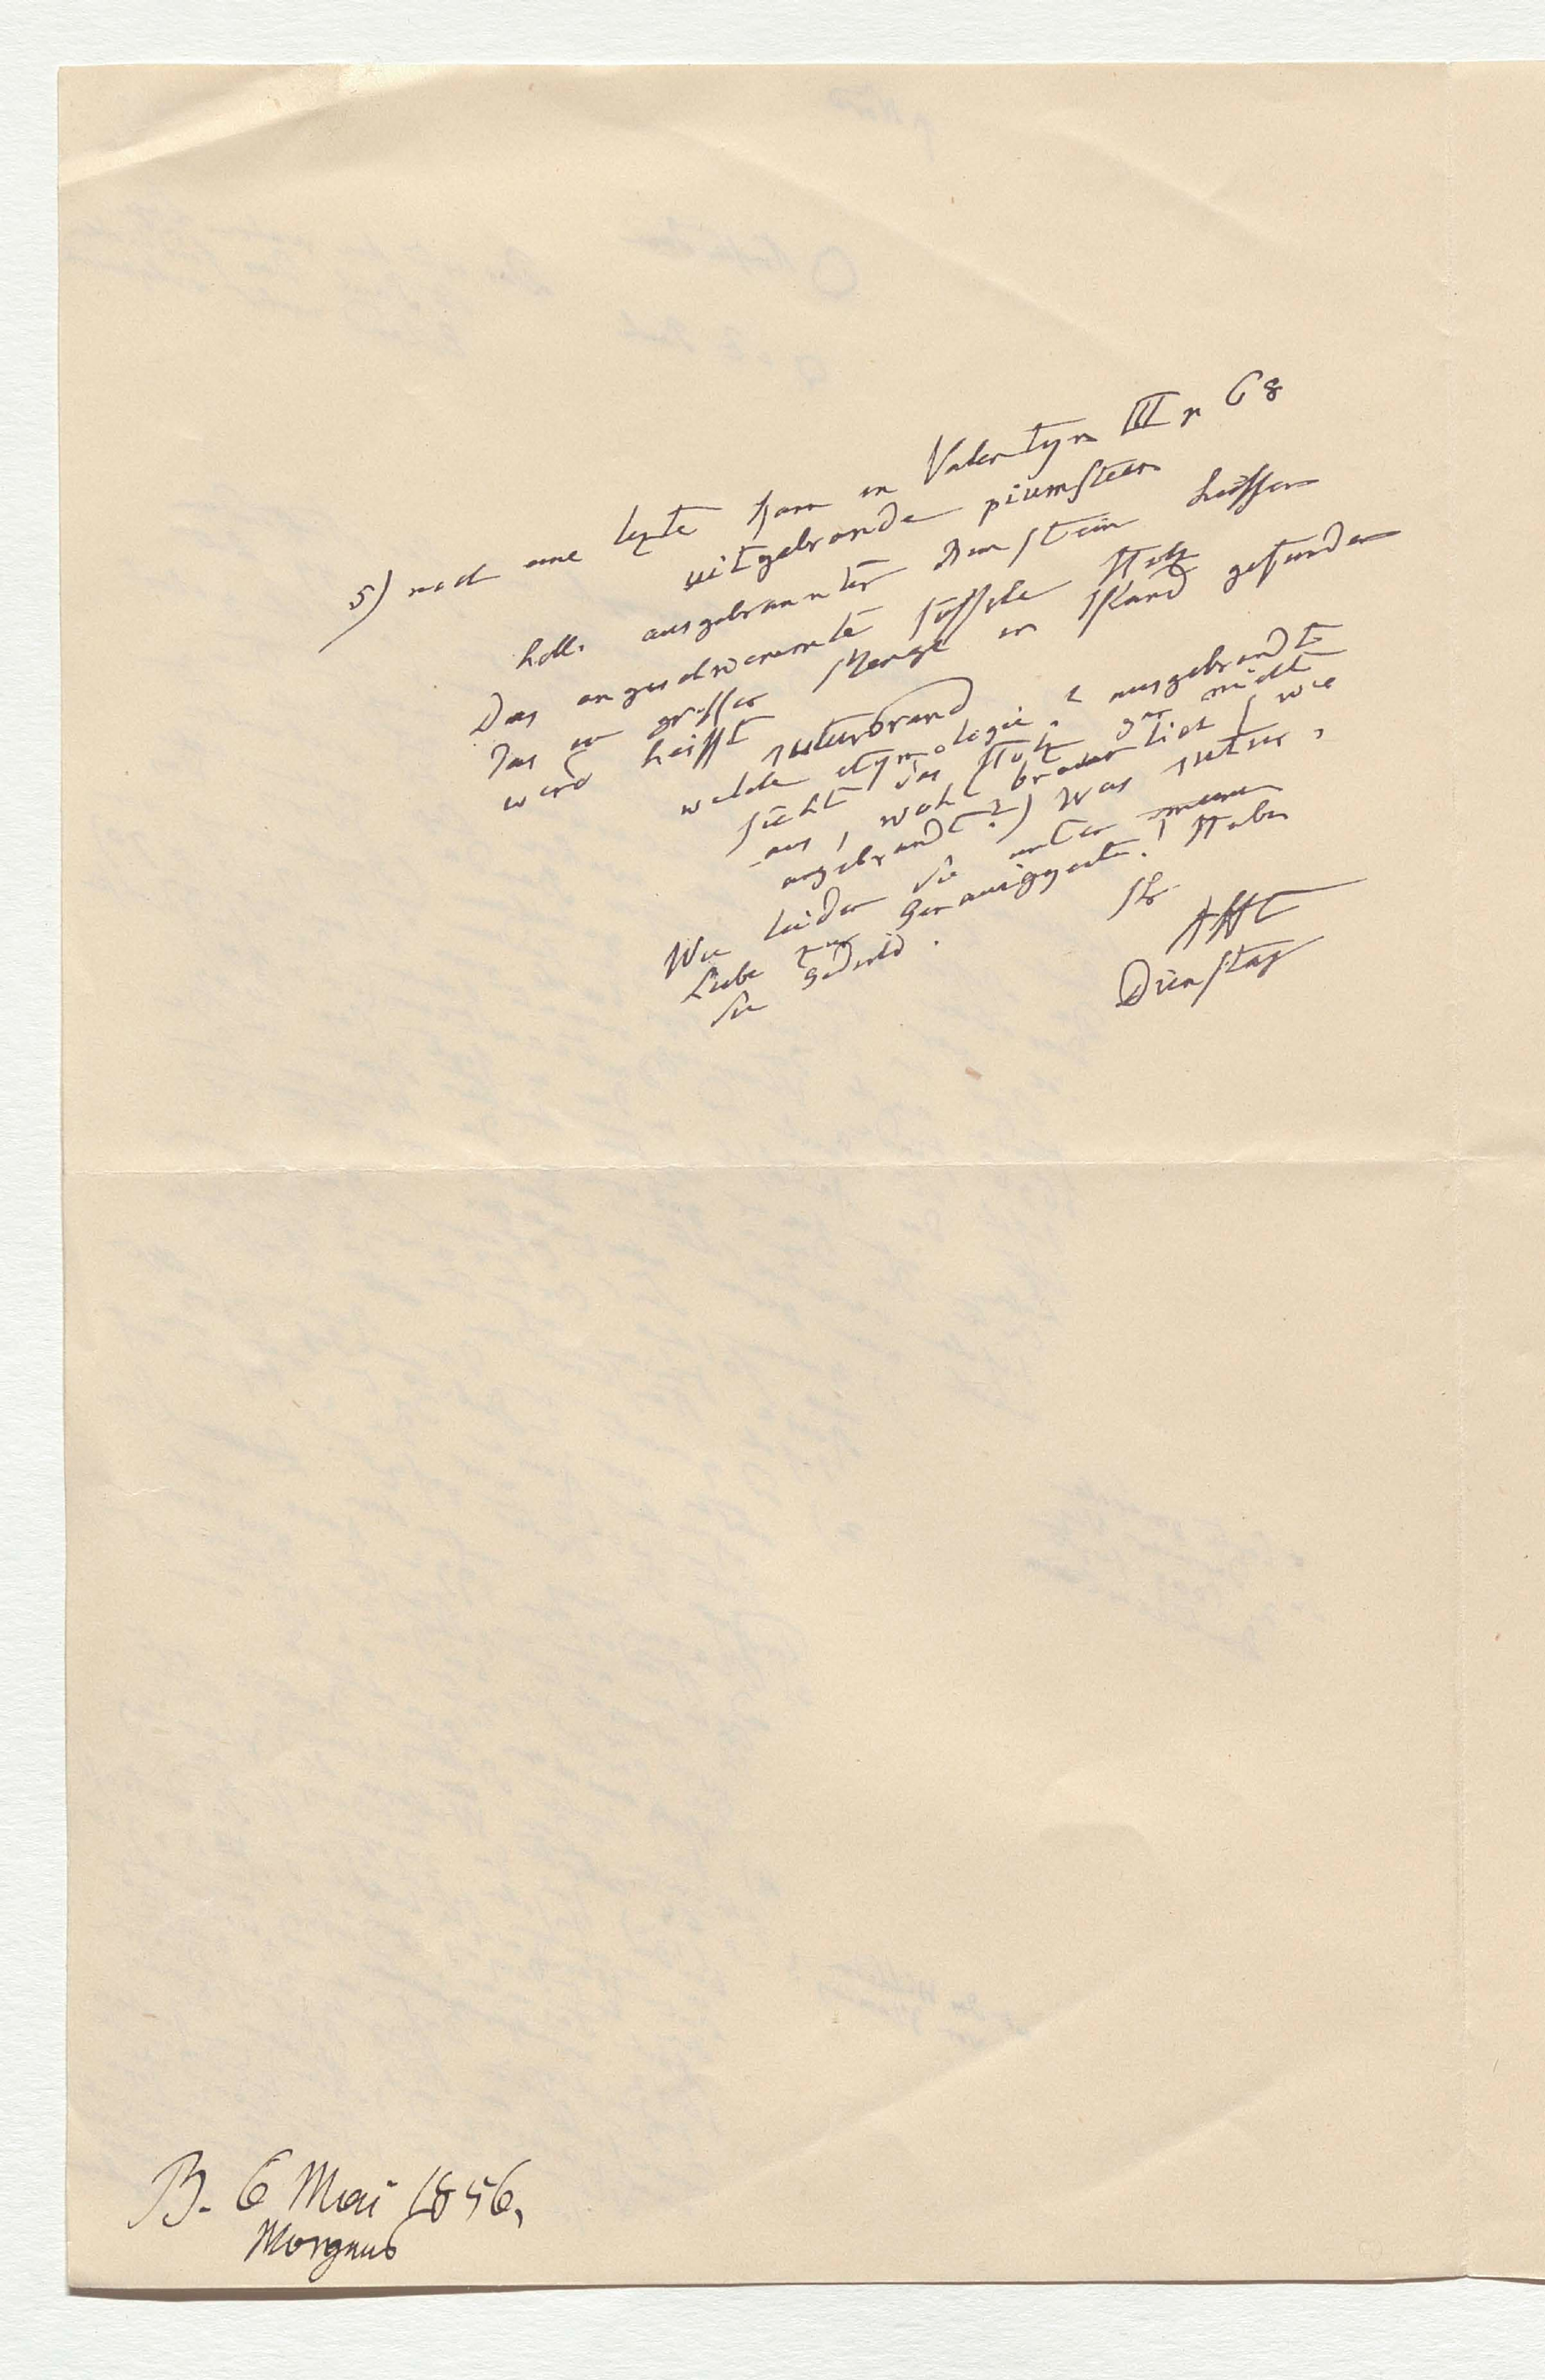 5) noch eine lezte Kann in Valentyn III p 68
uitgebrande piumsteen
holl. ausgebrannter Bimstein heissen
Das angeschwemmte fossile Holz
das in grosser Menge in Island gefunden
wird heisst suturbrand
welche etymologie? ausgebrandt
sieht das Holz gar nicht
aus, wohl braunlich (wie
angebrandt?) Was sutur,
Wie leiden Sie unter meiner
Liebe zur Genauigkeit! Haben
Sie Geduld.
Ihr
AHt
Dienstag
B. 6 Mai 1856,
Morgens